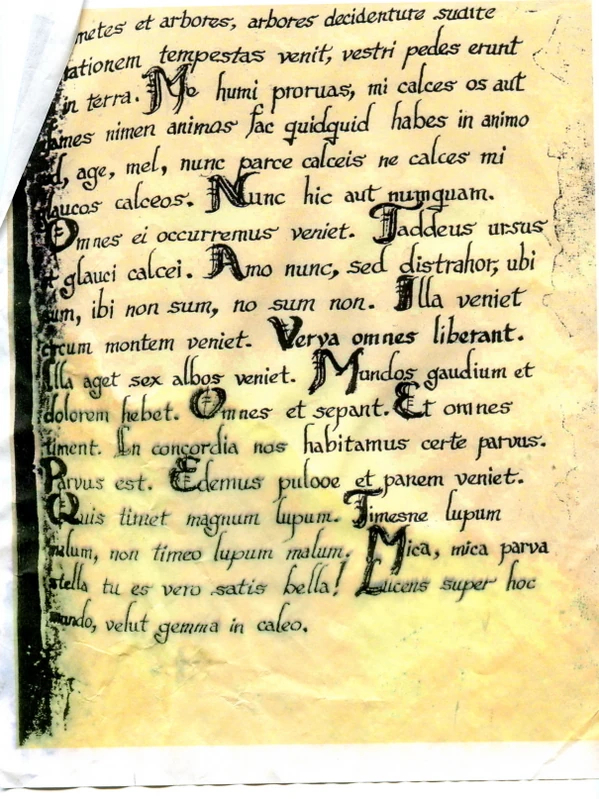 metes et arbores, arbores decidenture sudite
tationem tempestas venit, vestri pedes erunt
in terra. Me humi proruas, mi calces os aut
ames nimen animas fac quidquid habes in animo
d, age, mel, nunc parce calceis ne calces mi
laucos calceos. Nunc hic aut numquam.
Omnes ei occurremus veniet. Taddeus ursus
t glauci calcei. Amo nunc, sed distrahor, ubi
sum, ibi non sum, no sum non. Illa veniet
circum montem veniet. Verya omnes liberant.
Illa aget sex albos veniet. Mundos gaudium et
dolorem hebet. Omnes et sepant. Et omnes
timent. In concordia nos habitamus certe parvus.
Parvus est. Edemus pulooe et panem veniet.
Quis timet magnum lupum. Timesne lupum
malum, non timeo lupum malum. Mica, mica parva
stella tu es vero satis bella! Lucens super hoc
mundo, velut gemma in caleo.